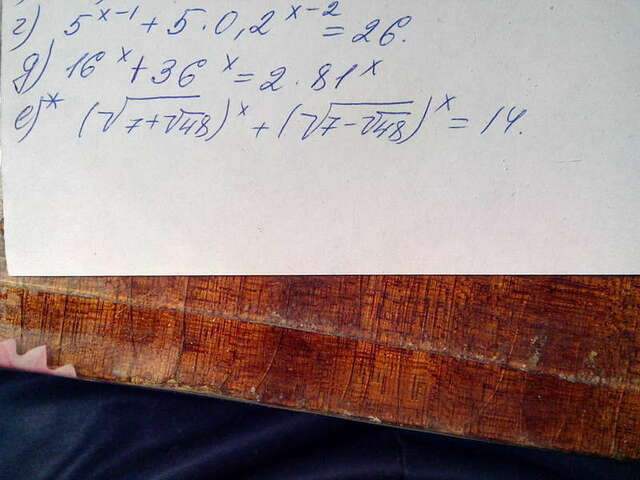 г) 5^{x-1} + 5 · 0,2^{x-2} = 26.
д) 16^x + 36^x = 2 · 81^x
е)* (√(7+√48))^x + (√(7-√48))^x = 14.